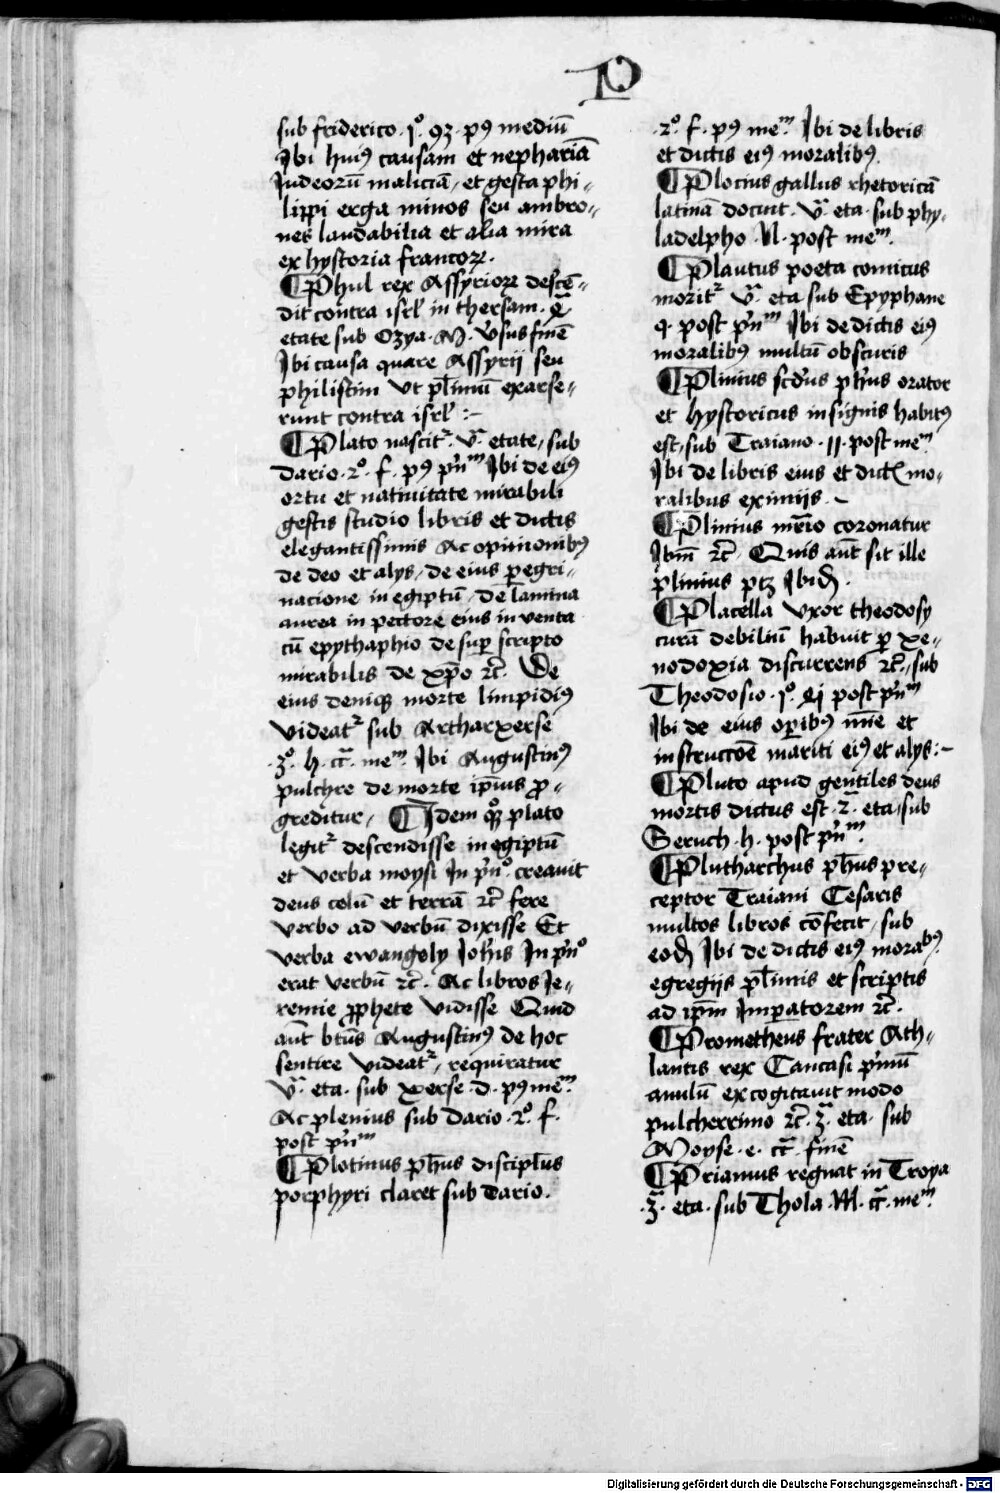 P
sub friderico · 1º · 9z · p9 mediū
Ibi hui9 causam et nephariā
Iudeorū maliciā, et gesta phi-
lippi erga minos seu ambro-
nes laudabilia et alia mira
ex hystoria francorꝝ.
¶ Phul rex Assyrioꝝ descē-
dit contra isrl' in thersam · q̄
etate sub Ozya · M · v̄sus finē
Ibi causa quare Assyrij seu
philistim ut pl̄imū exarse-
runt contra isrl' :~
¶ Plato nascit᷑ · v̄ᵃ · etate, sub
dario · 2º · f · p9 pⁱnᵐ Ibi de ei9
ortu et natiuitate mirabili
gestis studio libris et dictis
elegantissimis Ac opinionib9
de deo et alys, de eius ꝑegri-
nacione in egiptū, De lamina
aurea in pectore eius inuenta
cū epythaphio desuꝑ scripto
mirabilis de xp̄o ⁊c̄. De
eius deniqꝫ morte limpidi9
videat᷑ sub Artharxerse
· 3º · h · cᷓ · meᵐ. Ibi Augustin9
pulchre de morte ip̄ius pro-
greditur, ¶ Idem qꝫº plato
legit᷑ descendisse in egiptū
et verba moysi In pⁱnº. creauit
deus celū et terrā ⁊c̄ fere
verbo ad verbū dixisse Et
verba ewangely Ioh̄is In pⁱnº
erat verbū ⁊c̄. Ac libros Ie-
remie ꝓphete vidisse Quid
aūt btūs Augustin9 de hoc
sentire videat᷑, requiratur
v̄ᵃ · eta · sub xerse · d · p9 meᵐ.
Ac plenius sub dario · 2º · f ·
post pⁱnᵐ
¶ Plotinus ph̄us discipl̄us
porphyri claret sub Dario.
· 2º · f · p9 meᵐ. Ibi de libris
et dictis ei9 moralib9.
¶ Plocius gallus rhetoricā
latinā docuit · v̄ᵃ · eta · sub phy-
ladelpho · N · post meᵐ.
¶ Plautus poeta comicus
morit᷑ v̄ᵃ · eta sub Epyphane
q · post pⁱnᵐ Ibi de dictis ei9
moralib9 multū obscuris
¶ Plinius scd̄us ph̄us orator
et hystoricus insignis habit9
est, sub Traiano · 11 · post meᵐ
Ibi de libris eius et dictꝭ mo-
ralibus eximijs · ~
¶ Plinius mr̄io coronatur
Ibm̄ ⁊c̄. Quis aūt sit ille
plinius ptꝫ Ibid.
¶ Placella vxor theodosy
curā debiliū habuit ꝑ xe-
nodoxia discurrens ⁊c̄, sub
Theodosio · 1º · qi post pⁱnᵐ
Ibi de eius oꝑib9 mīe et
instruccōe mariti ei9 et alys :~
¶ Pluto apud gentiles deus
mortis dictus est · 2ᵃ · eta, sub
Seruch · h · post pⁱnᵐ.
¶ Plutharchus ph̄us pre-
ceptor Traiani Cesaris
multos libros cōfecit, sub
eod Ibi de dictis ei9 morab9.
egregijs pl̄imis et scriptis
ad ip̄m Imꝑatorem ⁊c̄.
¶ Prometheus frater Ath-
lantis rex Caucasi pⁱmū
anulū excogitauit modo
pulcherrimo ⁊c̄ · 3ᵃ · eta · sub
Moyse · e · cᷓ · finē
¶ Priamus regnat in Troya
· 3ᵃ · eta · sub Thola · M · cᷓ · meᵐ.
Digitalisierung gefördert durch die Deutsche Forschungsgemeinschaft - DFG